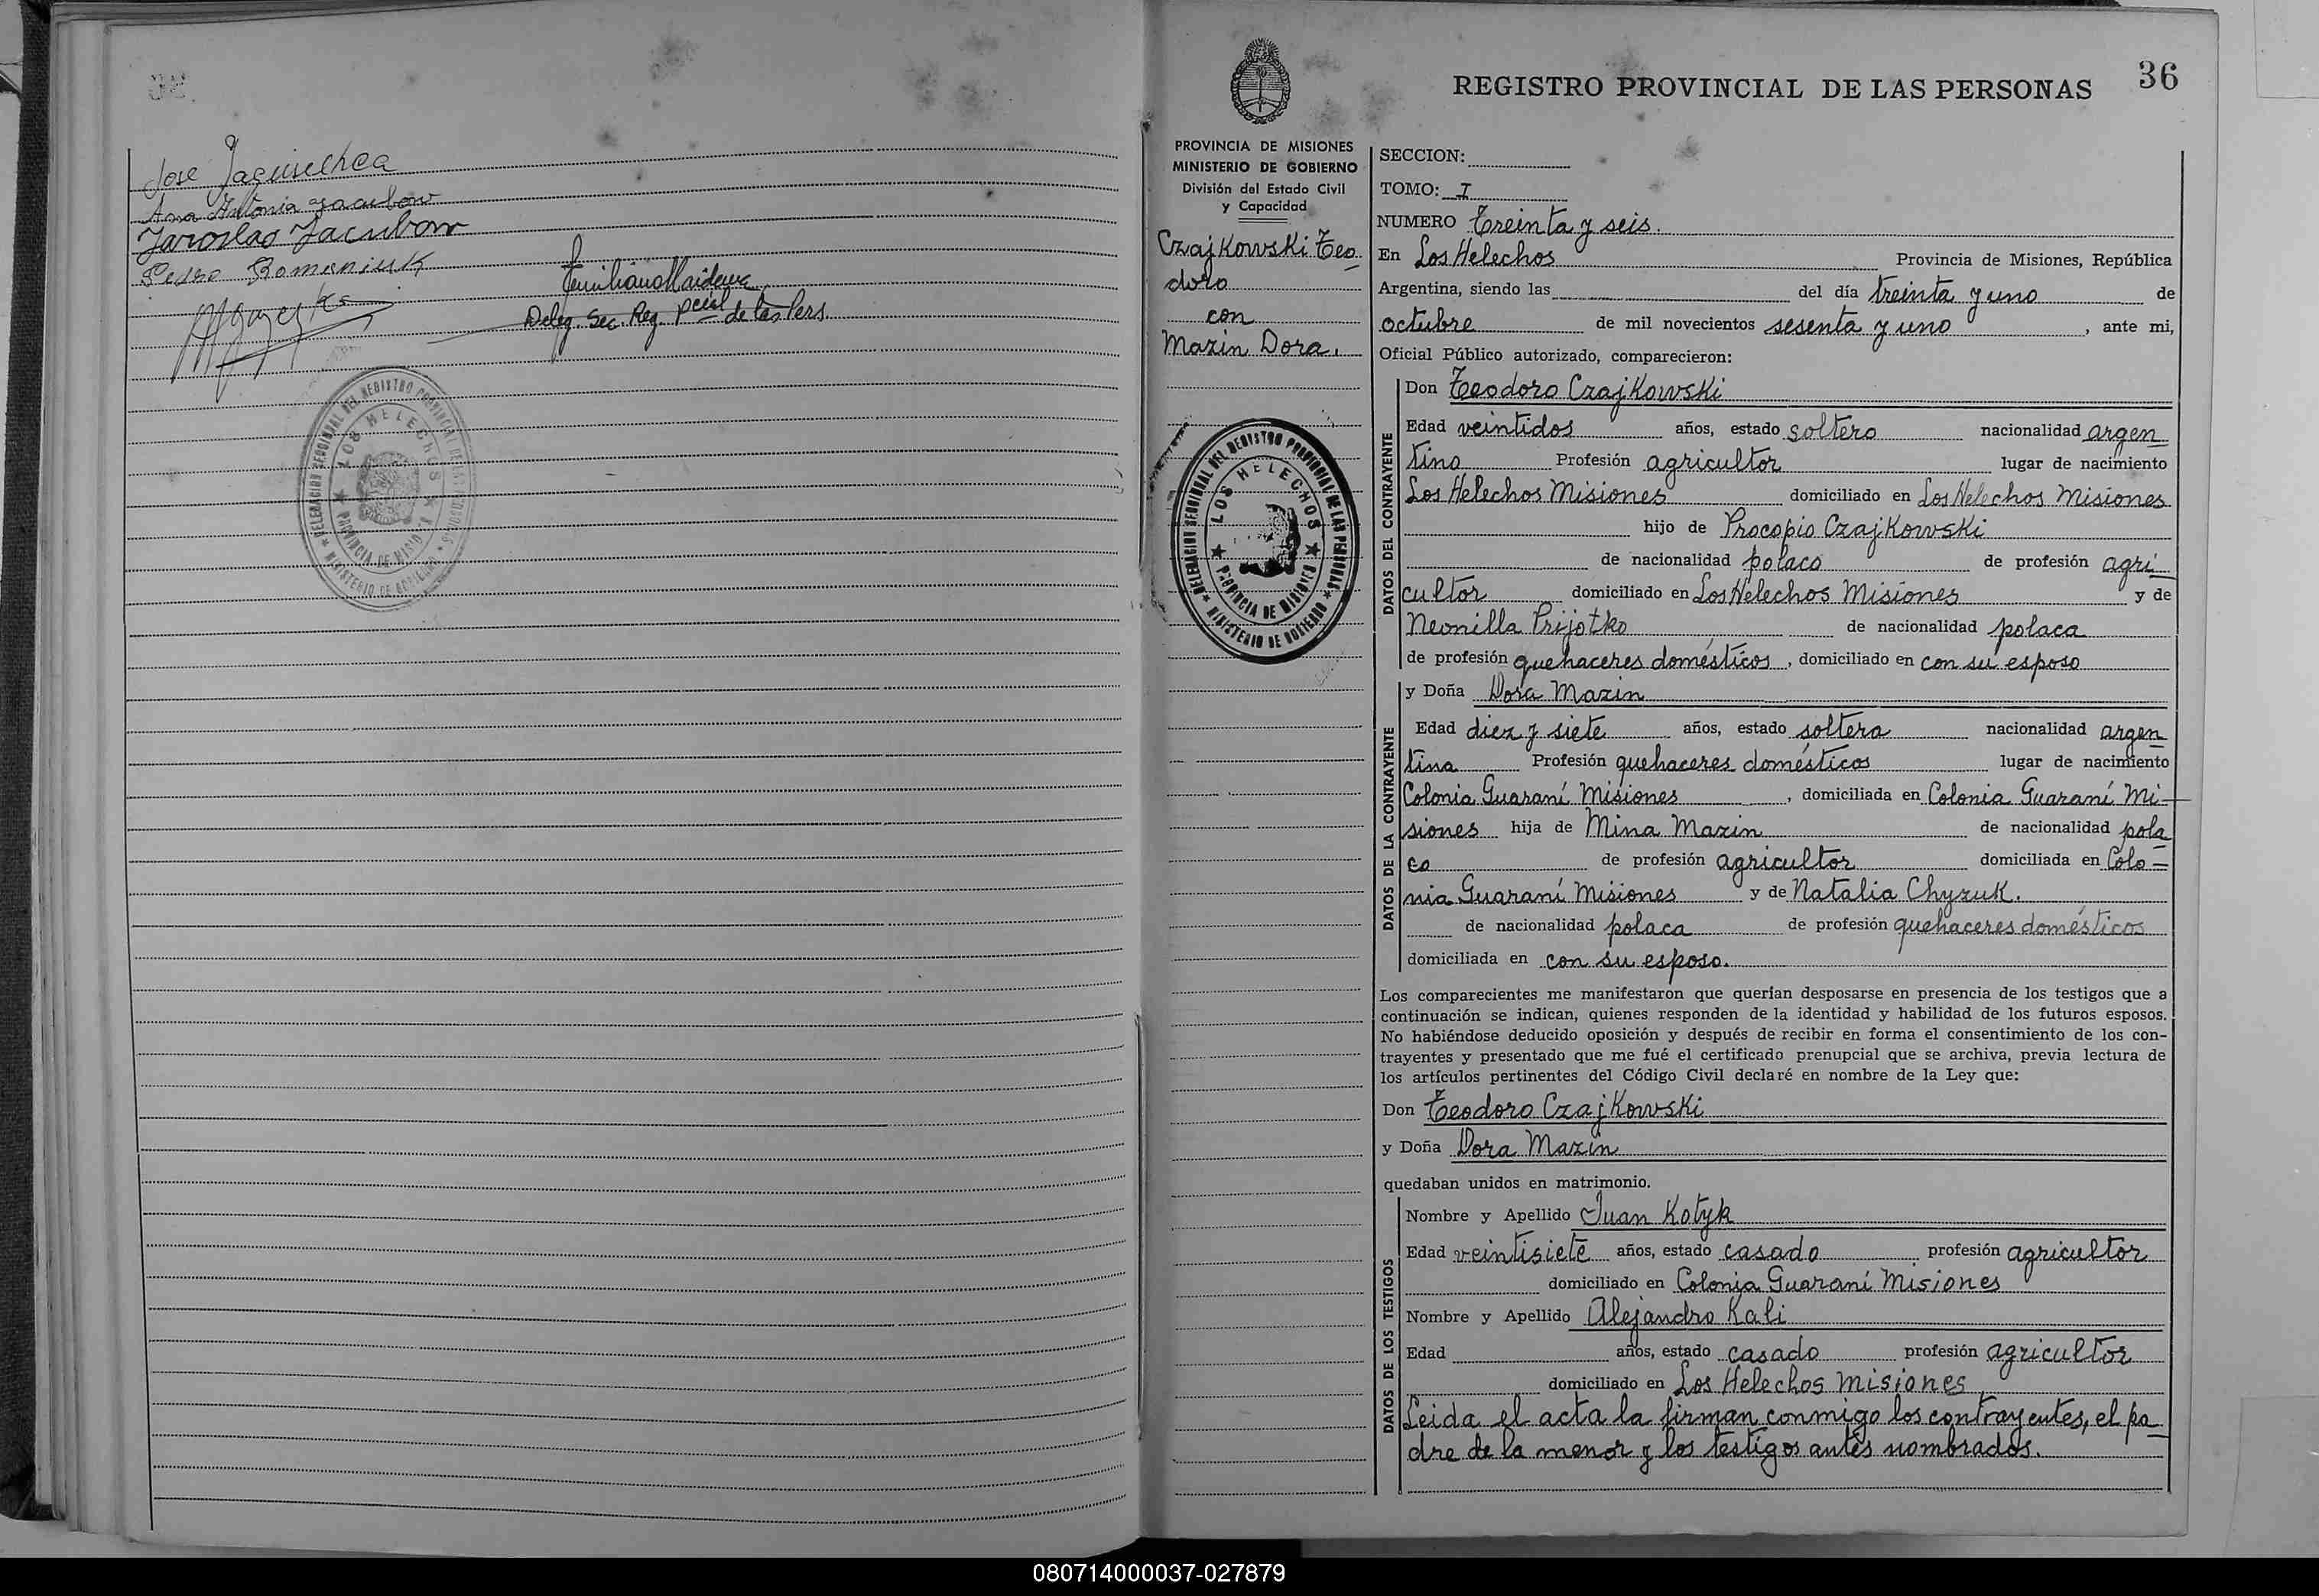 Jose
Ana Antonia Jacubow
Jaroslao Jacubow
Pedro Romaniuk
Deleg. Sec. Reg. Pcial de las Pers.
DELEGACION SECCIONAL DEL REGISTRO PROVINCIAL DE LAS PERSONAS
LOS HELECHOS
PROVINCIA DE MISIONES
MINISTERIO DE GOBIERNO
36
REGISTRO PROVINCIAL DE LAS PERSONAS
PROVINCIA DE MISIONES
MINISTERIO DE GOBIERNO
División del Estado Civil
y Capacidad
Czajkowski Teo
doro
con
Mazin Dora.
DELEGACION SECCIONAL DEL REGISTRO PROVINCIAL DE LAS PERSONAS
LOS HELECHOS
PROVINCIA DE MISIONES
MINISTERIO DE GOBIERNO
SECCION:
TOMO: I
NUMERO Treinta y seis.
En Los Helechos Provincia de Misiones, República
Argentina, siendo las del día treinta y uno de
octubre de mil novecientos sesenta y uno, ante mi,
Oficial Público autorizado, comparecieron:
DATOS DEL CONTRAYENTE
Don Teodoro Czajkowski
Edad veintidos años, estado soltero nacionalidad argen
tino Profesión agricultor lugar de nacimiento
Los Helechos Misiones domiciliado en Los Helechos Misiones
hijo de Procopio Czajkowski
de nacionalidad polaco de profesión agri
cultor domiciliado en Los Helechos Misiones y de
Neonilla Prijotko de nacionalidad polaca
de profesión quehaceres domésticos, domiciliado en con su esposo
DATOS DE LA CONTRAYENTE
y Doña Dora Mazin
Edad diez y siete años, estado soltera nacionalidad argen
tina Profesión quehaceres domésticos lugar de nacimiento
Colonia Guaraní Misiones, domiciliada en Colonia Guaraní Mi-
siones hija de Mina Mazin de nacionalidad pola
co de profesión agricultor domiciliada en Colo=
nia Guaraní Misiones y de Natalia Chyzuk.
de nacionalidad polaca de profesión quehaceres domésticos
domiciliada en con su esposo.
Los comparecientes me manifestaron que querían desposarse en presencia de los testigos que a
continuación se indican, quienes responden de la identidad y habilidad de los futuros esposos.
No habiéndose deducido oposición y después de recibir en forma el consentimiento de los con-
trayentes y presentado que me fué el certificado prenupcial que se archiva, previa lectura de
los artículos pertinentes del Código Civil declaré en nombre de la Ley que:
Don Teodoro Czajkowski
y Doña Dora Mazin
quedaban unidos en matrimonio.
DATOS DE LOS TESTIGOS
Nombre y Apellido Juan Kotyk
Edad veintisiete años, estado casado profesión agricultor
domiciliado en Colonia Guaraní Misiones
Nombre y Apellido Alejandro Kali
Edad años, estado casado profesión agricultor
domiciliado en Los Helechos Misiones
Leida el acta la firman conmigo los contrayentes, el pa
dre de la menor y los testigos antes nombrados.
080714000037-027879